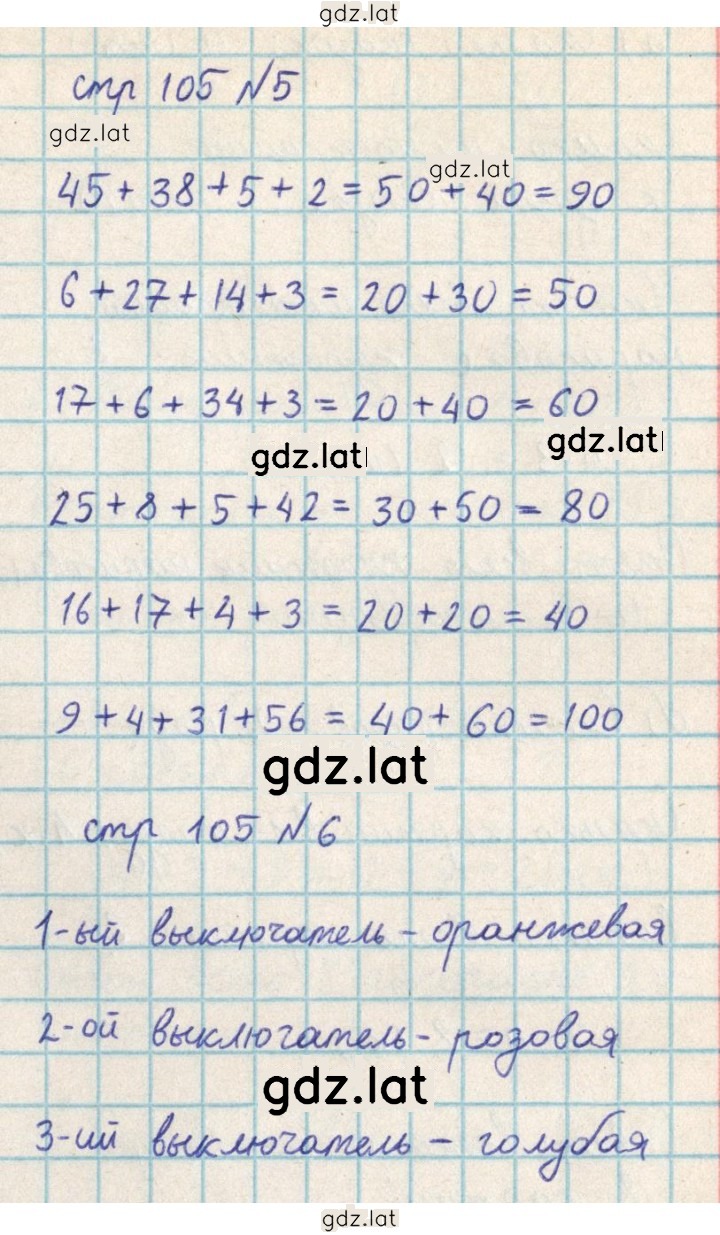 gdz.lat
стр 105 №5
gdz.lat
gdz.lat
45 + 38 + 5 + 2 = 50 + 40 = 90
6 + 27 + 14 + 3 = 20 + 30 = 50
17 + 6 + 34 + 3 = 20 + 40 = 60
gdz.lat
gdz.lat
25 + 8 + 5 + 42 = 30 + 50 = 80
16 + 17 + 4 + 3 = 20 + 20 = 40
9 + 4 + 31 + 56 = 40 + 60 = 100
gdz.lat
стр 105 №6
1-ый выключатель - оранжевая
2-ой выключатель - розовая
gdz.lat
3-ий выключатель - голубая
gdz.lat